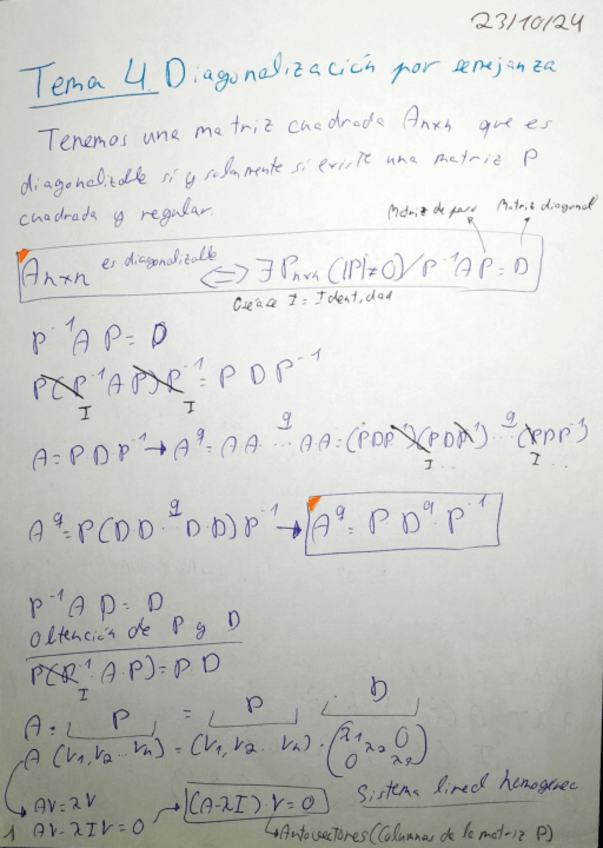 23/10/24
Tema 4. Diagonalización por semejanza
Tenemos una matriz cuadrada Anxn que es
diagonalizable si y solamente si existe una matriz P
cuadrada y regular.
Matriz de paso Matriz diagonal
Anxn es diagonalizable ⟺ ∃ Pnxn (|P|≠0) / P⁻¹AP = D
I = Identidad
P⁻¹AP = D
P(P⁻¹AP)P⁻¹ = PDP⁻¹
I I
A = PDP⁻¹ → A^q = AA ..^q.. AA = (PDP⁻¹)(PDP⁻¹) ..^q.. (PDP⁻¹)
I... I...
A^q = P(DD ..^q.. D·D)P⁻¹ → A^q = P D^q · P⁻¹
P⁻¹AP = D
Obtención de P y D
P(P⁻¹A·P) = P·D
I
A · P = P D
A (V1, V2 ... Vn) = (V1, V2 .. Vn) · (λ1 λ2 0 0 λ2)
AV = λV
AV - λIV = 0 → (A-λI)·V = 0 Sistema lineal homogeneo
1 ↳ Autovectores (Columnas de la matriz P)